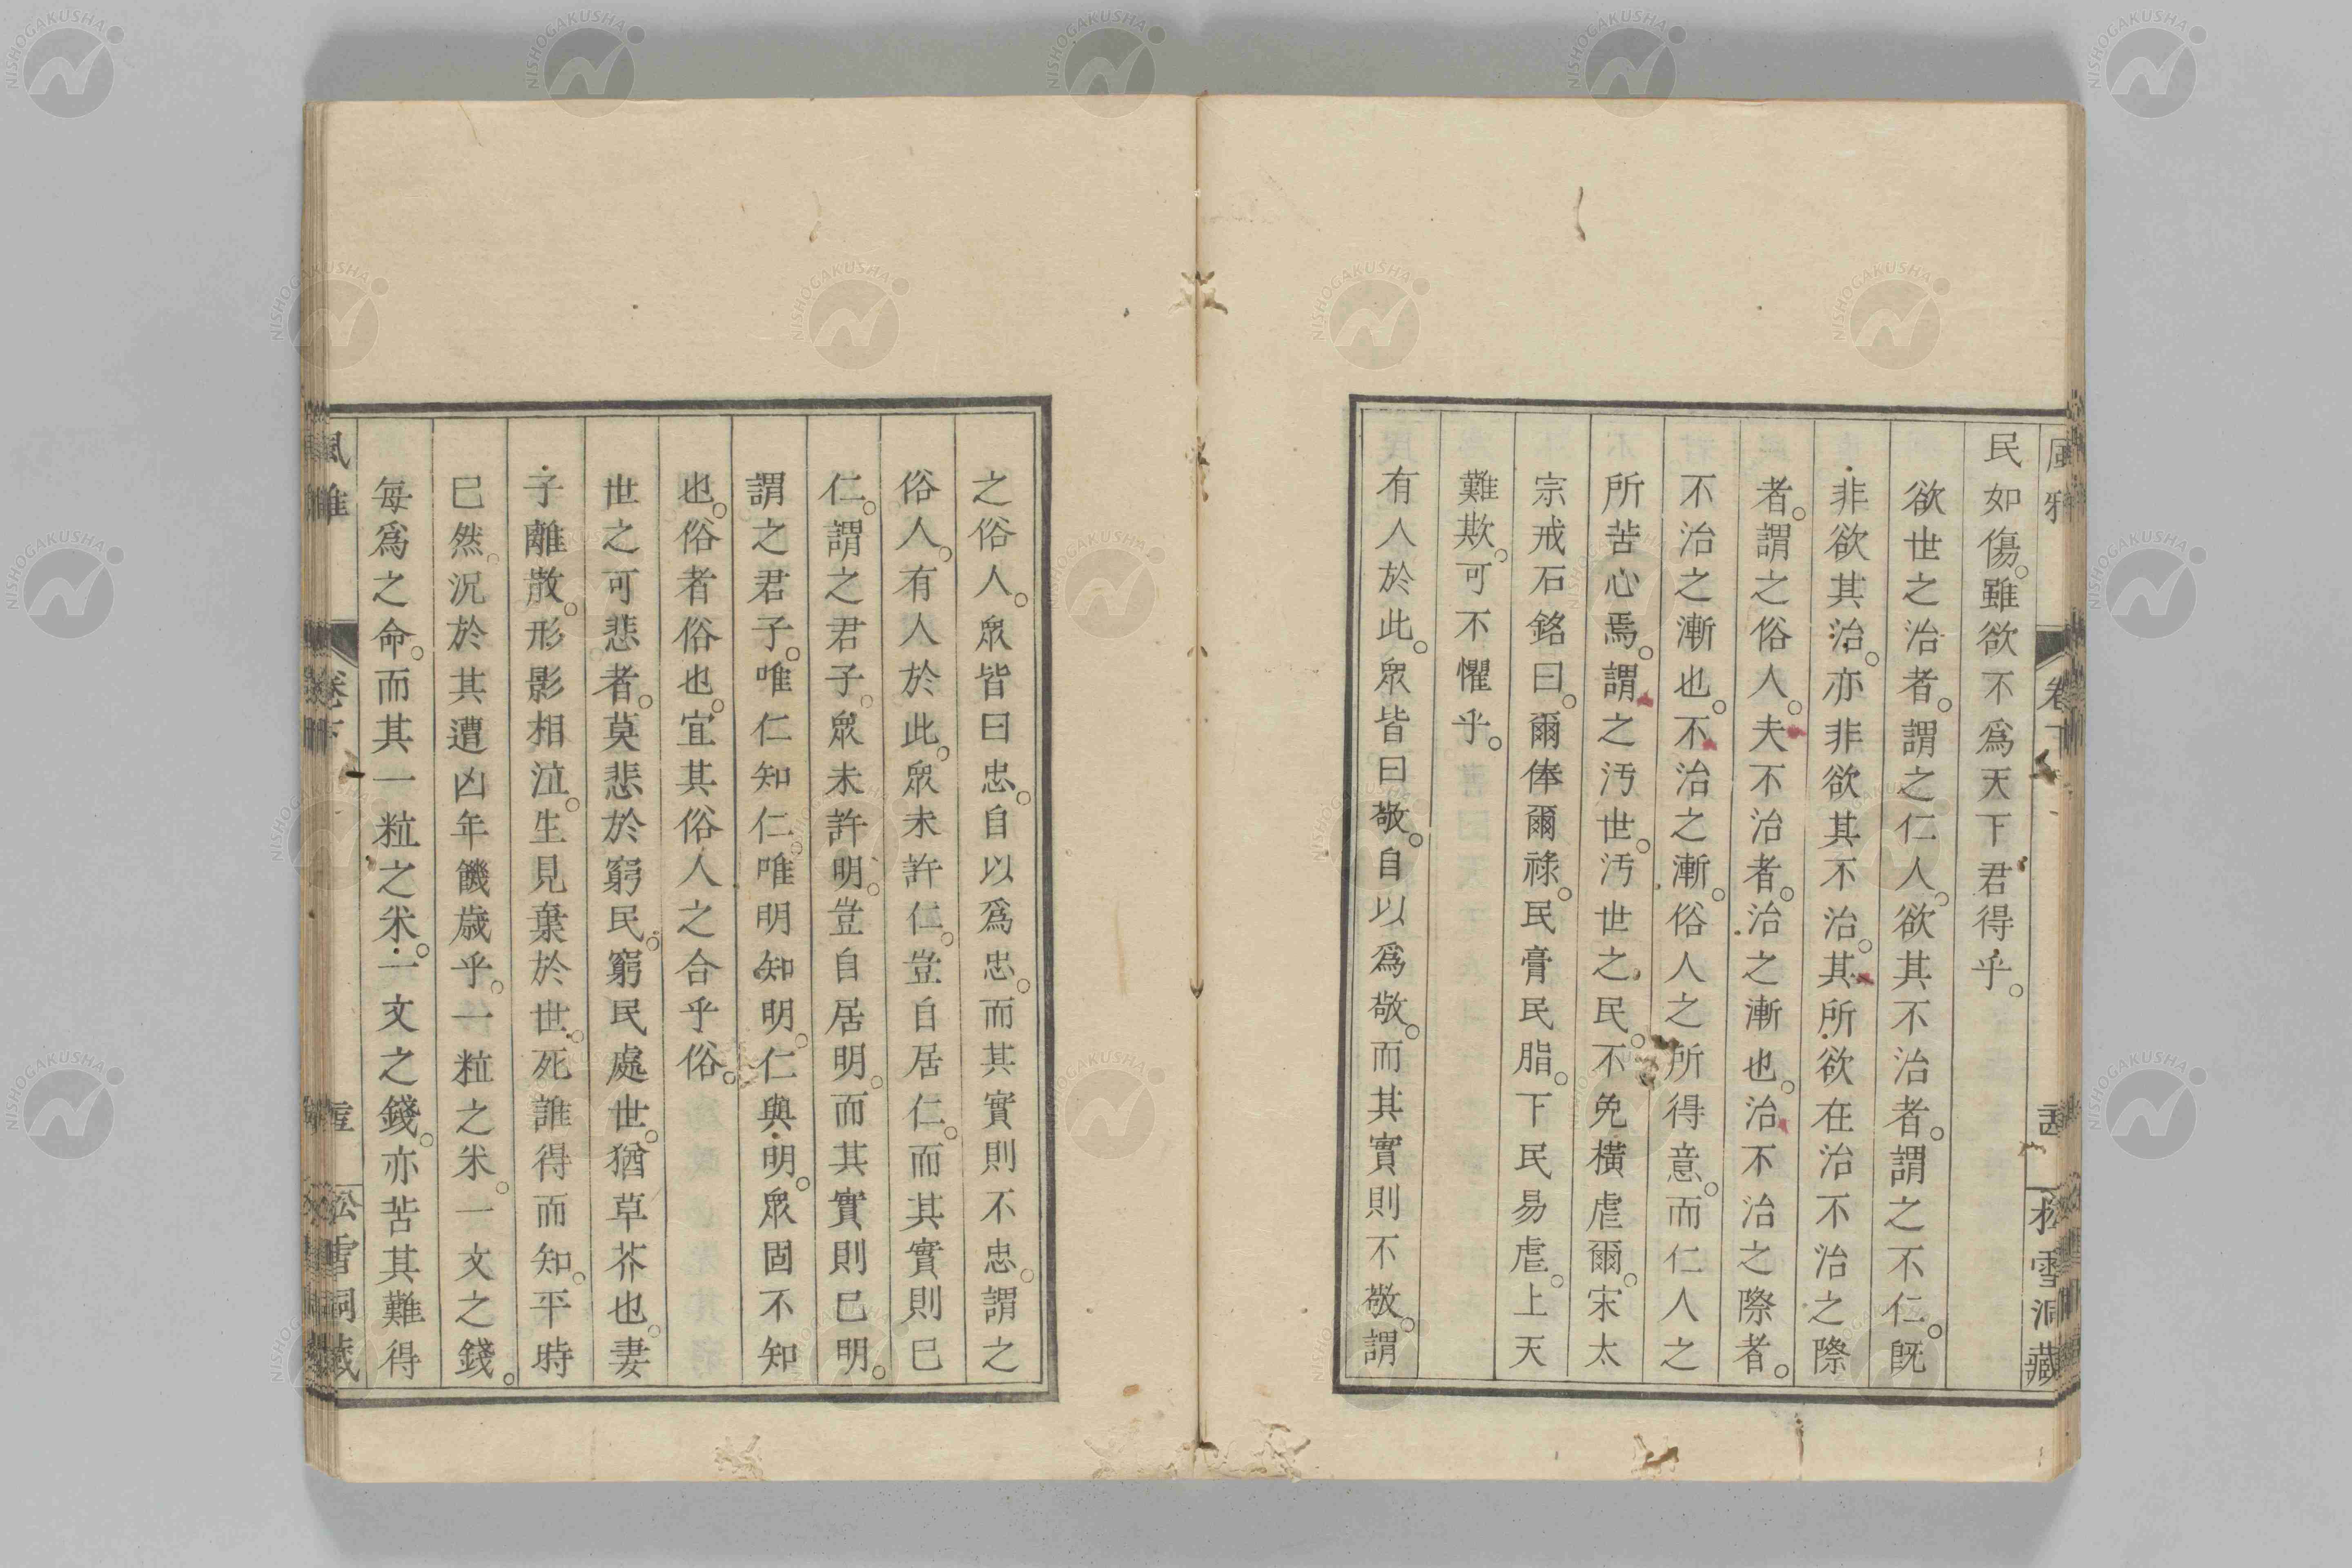 民如傷。雖欲不爲天下君得乎。
欲世之治者。謂之仁人。欲其不治者。謂之不仁。既
非欲其治。亦非欲其不治。其所欲在治不治之際
者。謂之俗人。夫不治者。治之漸也。治不治之際者。
不治之漸也。不治之漸。俗人之所得意。而仁人之
所苦心焉。謂之汚世。汚世之民。不免橫虐爾。宋太
宗戒石銘曰。爾俸爾祿。民膏民脂。下民易虐。上天
難欺。可不懼乎。
有人於此。衆皆曰敬。自以爲敬。而其實則不敬。謂
之俗人。衆皆曰忠。自以爲忠。而其實則不忠。謂之
俗人。有人於此。衆未許仁。豈自居仁。而其實則已
仁。謂之君子。衆未許明。豈自居明。而其實則已明。
謂之君子。唯仁知仁。唯明知明。仁與明。衆固不知
也。俗者俗也。宜其俗人之合乎俗。
世之可悲者。莫悲於窮民。窮民處世。猶草芥也。妻
子離散。形影相泣。生見棄於世。死誰得而知。平時
已然。況於其遭凶年饑歲乎。一粒之米。一文之錢。
每爲之命。而其一粒之米。一文之錢。亦苦其難得
風雅
卷下
松雪洞藏
NISHOGAKUSHA